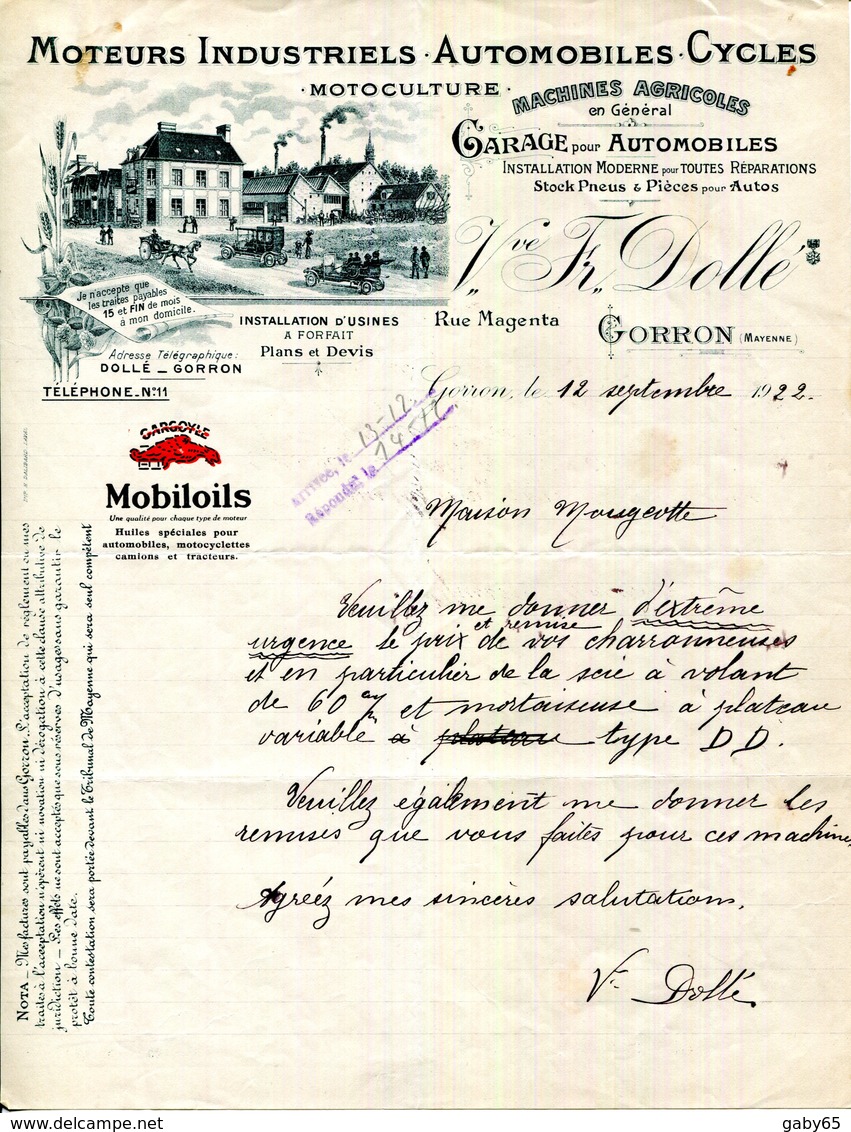 MOTEURS INDUSTRIELS · AUTOMOBILES · CYCLES
· MOTOCULTURE ·
MACHINES AGRICOLES
en Général
GARAGE pour AUTOMOBILES
INSTALLATION MODERNE pour TOUTES RÉPARATIONS
STOCK PNEUS & PIÈCES pour AUTOS
Vve Fr. Dollé
Rue Magenta
GORRON (MAYENNE)
Je n'accepte que
les traites payables
15 et FIN de mois
à mon domicile.
INSTALLATION D'USINES
A FORFAIT
Plans et Devis
Adresse Télégraphique:
DOLLÉ _ GORRON
TÉLÉPHONE_N°11
Gorron, le 12 septembre 1922.
ARRIVÉE, le 13-12
Répondu le 14-12
GARGOYLE
Mobiloils
Une qualité pour chaque type de moteur
Huiles spéciales pour
automobiles, motocyclettes
camions et tracteurs.
Maison Mougeotte
Veuillez me donner d'extrême
et remise
urgence le prix de vos charronneuses
et en particulier de la scie à volant
de 60 c/m et mortaiseuse à plateau
variable à plateau type D D.
Veuillez également me donner les
remises que vous faites pour ces machines
Agréez mes sincères salutations.
Ve Dollé
NOTA _ Mes factures sont payables dans Gorron. L'acceptation de règlement ou mes
traites à l'acceptation n'opèrent ni novation ni dérogation à cette clause attributive de
juridiction _ Les effets ne sont acceptés que sous réserves d'usage sans garantir le
protêt à bonne date.
Toute contestation sera portée devant le Tribunal de Mayenne qui sera seul compétent
gaby65